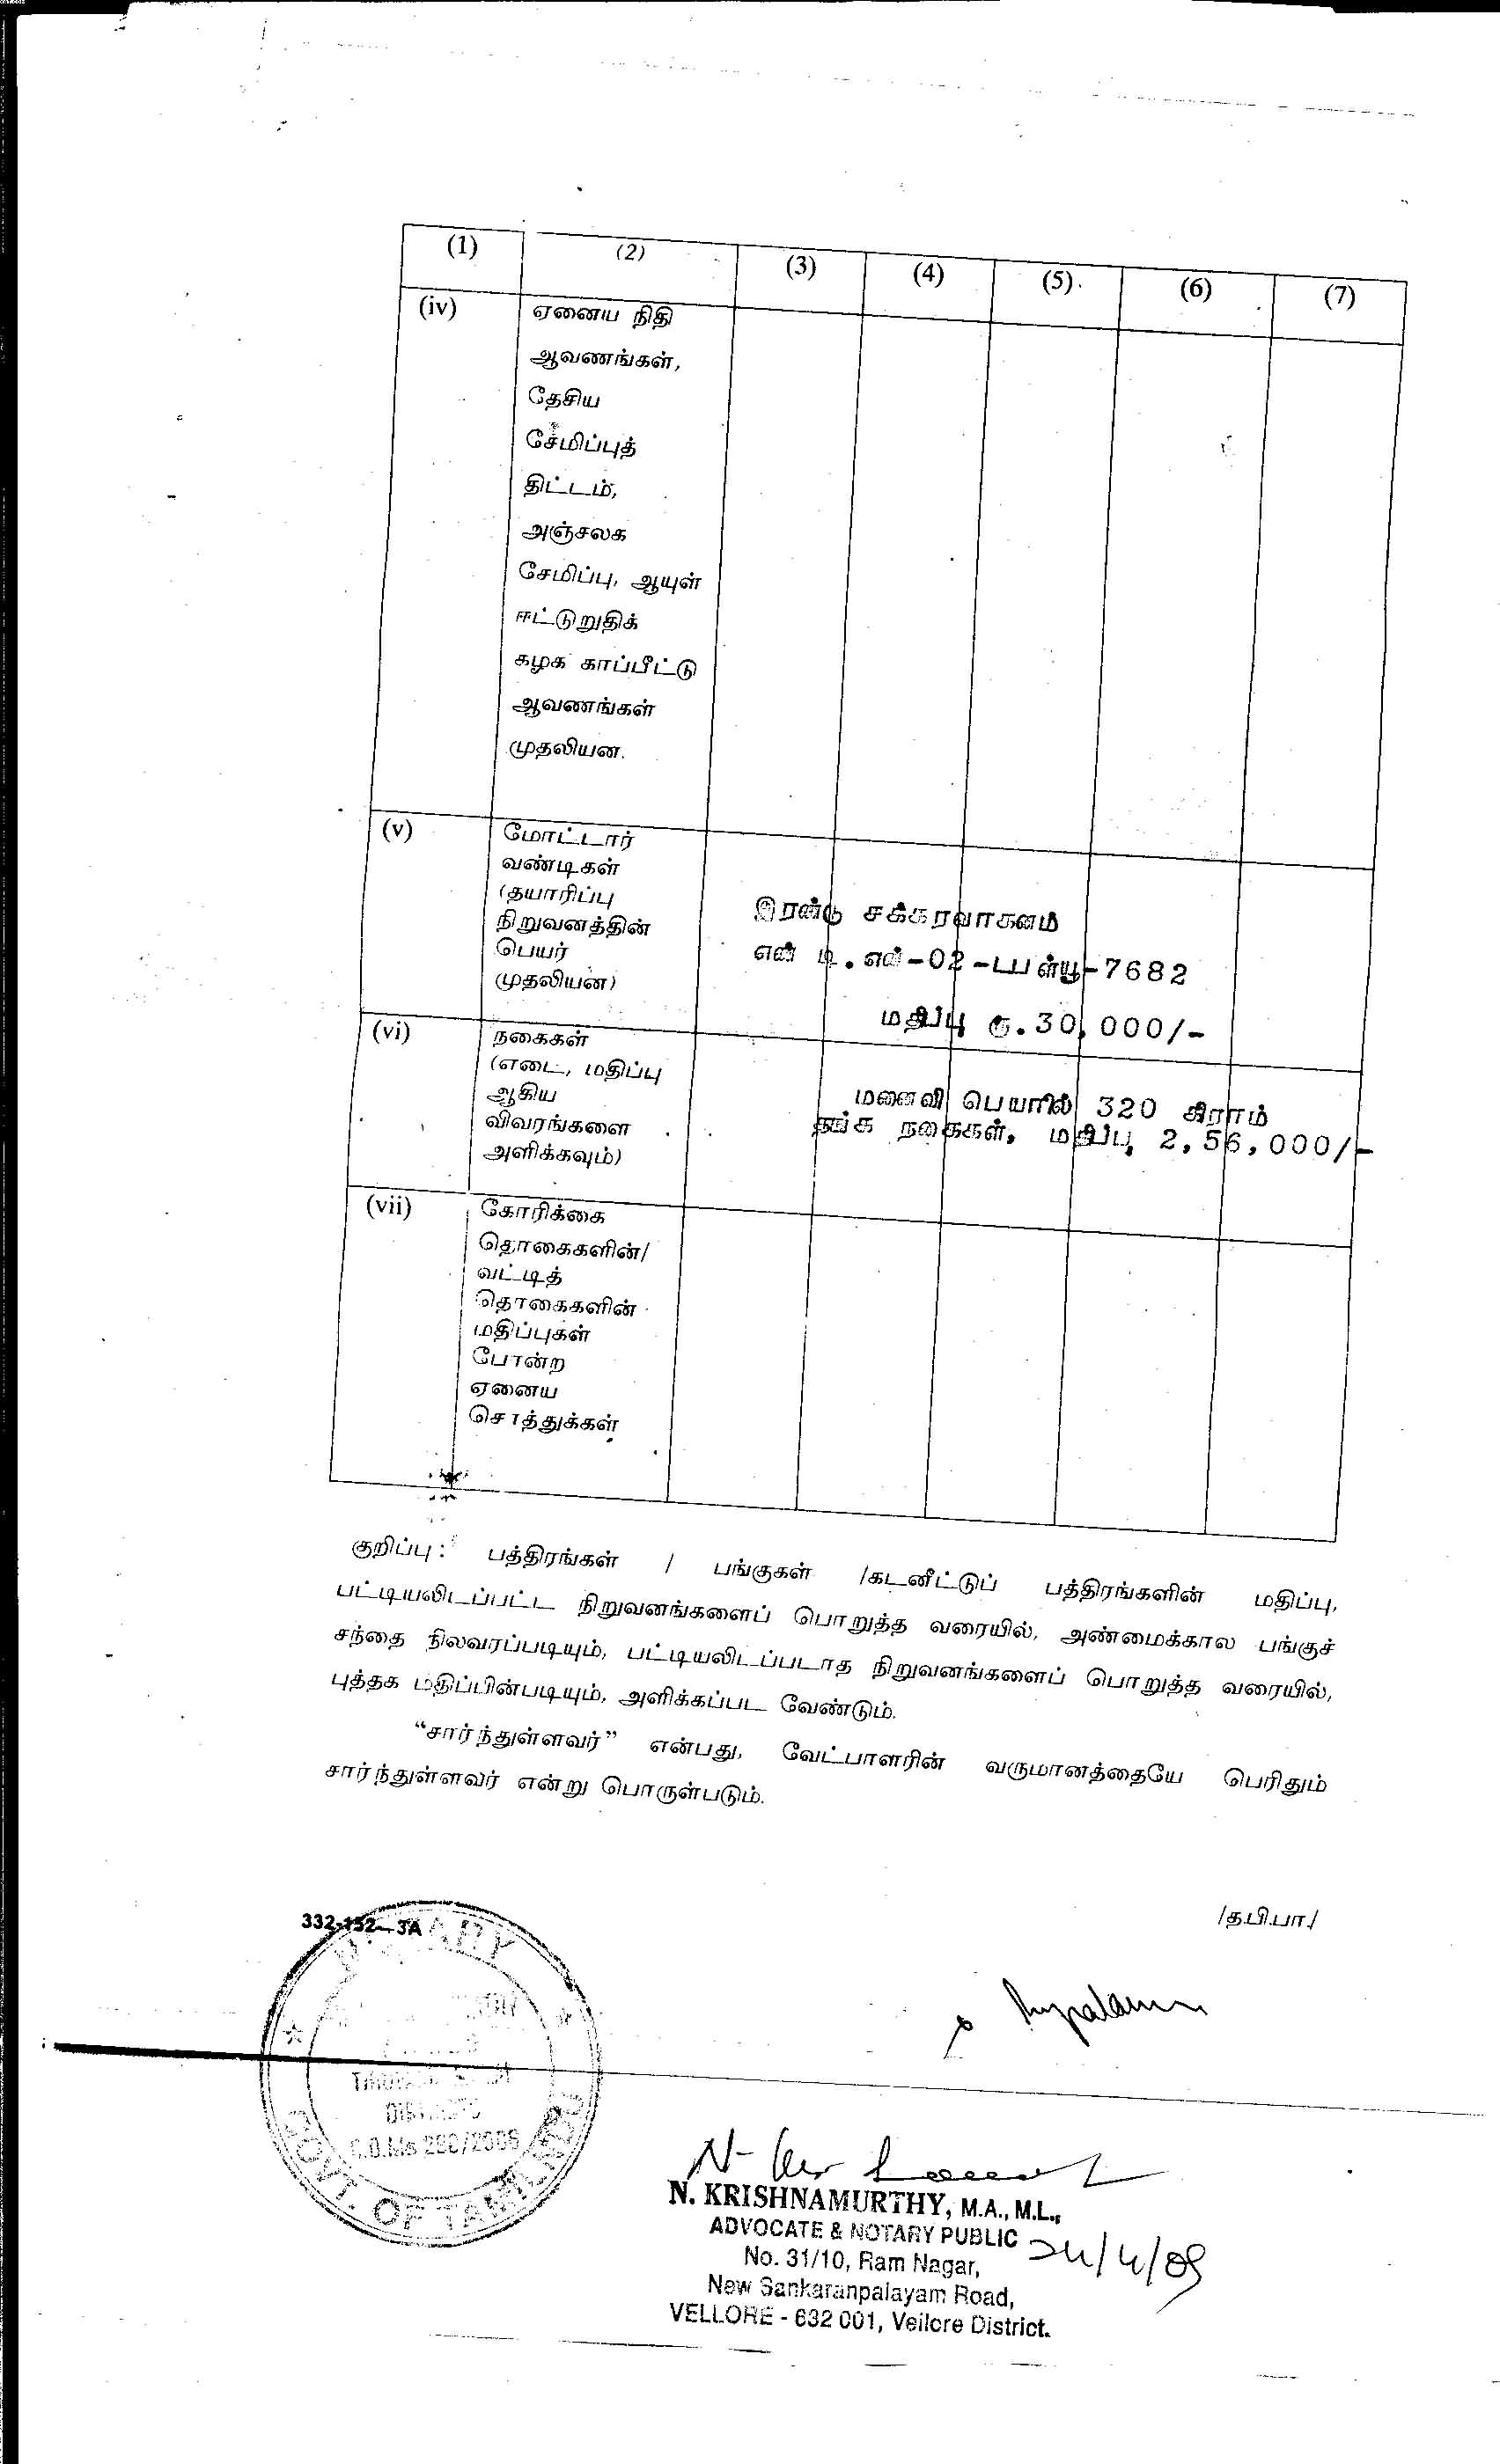 (1) (2) (3) (4) (5) (6) (7)
(iv) ஏனைய நிதி
ஆவணங்கள்,
தேசிய
சேமிப்புத்
திட்டம்,
அஞ்சலக
சேமிப்பு, ஆயுள்
ஈட்டுறுதிக்
கழக காப்பீட்டு
ஆவணங்கள்
முதலியன.
(v) மோட்டார்
வண்டிகள்
(தயாரிப்பு
நிறுவனத்தின்
பெயர்
முதலியன)
இரண்டு சக்கரவாகனம்
என் டி.எல்-02-டபள்யூ-7682
மதிப்பு ரூ.30,000/-
(vi) நகைகள்
(எடை, மதிப்பு
ஆகிய
விவரங்களை
அளிக்கவும்)
மனைவி பெயரில் 320 கிராம்
தங்க நகைகள், மதிப்பு 2,56,000/-
(vii) கோரிக்கை
தொகைகளின்/
வட்டித்
தொகைகளின்
மதிப்புகள்
போன்ற
ஏனைய
சொத்துக்கள்
குறிப்பு: பத்திரங்கள் / பங்குகள் /கடனீட்டுப் பத்திரங்களின் மதிப்பு,
பட்டியலிடப்பட்ட நிறுவனங்களைப் பொறுத்த வரையில், அண்மைக்கால பங்குச்
சந்தை நிலவரப்படியும், பட்டியலிடப்படாத நிறுவனங்களைப் பொறுத்த வரையில்,
புத்தக மதிப்பின்படியும், அளிக்கப்பட வேண்டும்.
“சார்ந்துள்ளவர்” என்பது, வேட்பாளரின் வருமானத்தையே பெரிதும்
சார்ந்துள்ளவர் என்று பொருள்படும்.
/த.பி.பா./
332-152—3A
NOTARY
G.O.Ms 280/2006
GOVT. OF TAMILNADU
N. KRISHNAMURTHY, M.A., M.L.,
ADVOCATE & NOTARY PUBLIC
24/4/09
No. 31/10, Ram Nagar,
New Sankaranpalayam Road,
VELLORE - 632 001, Vellore District.